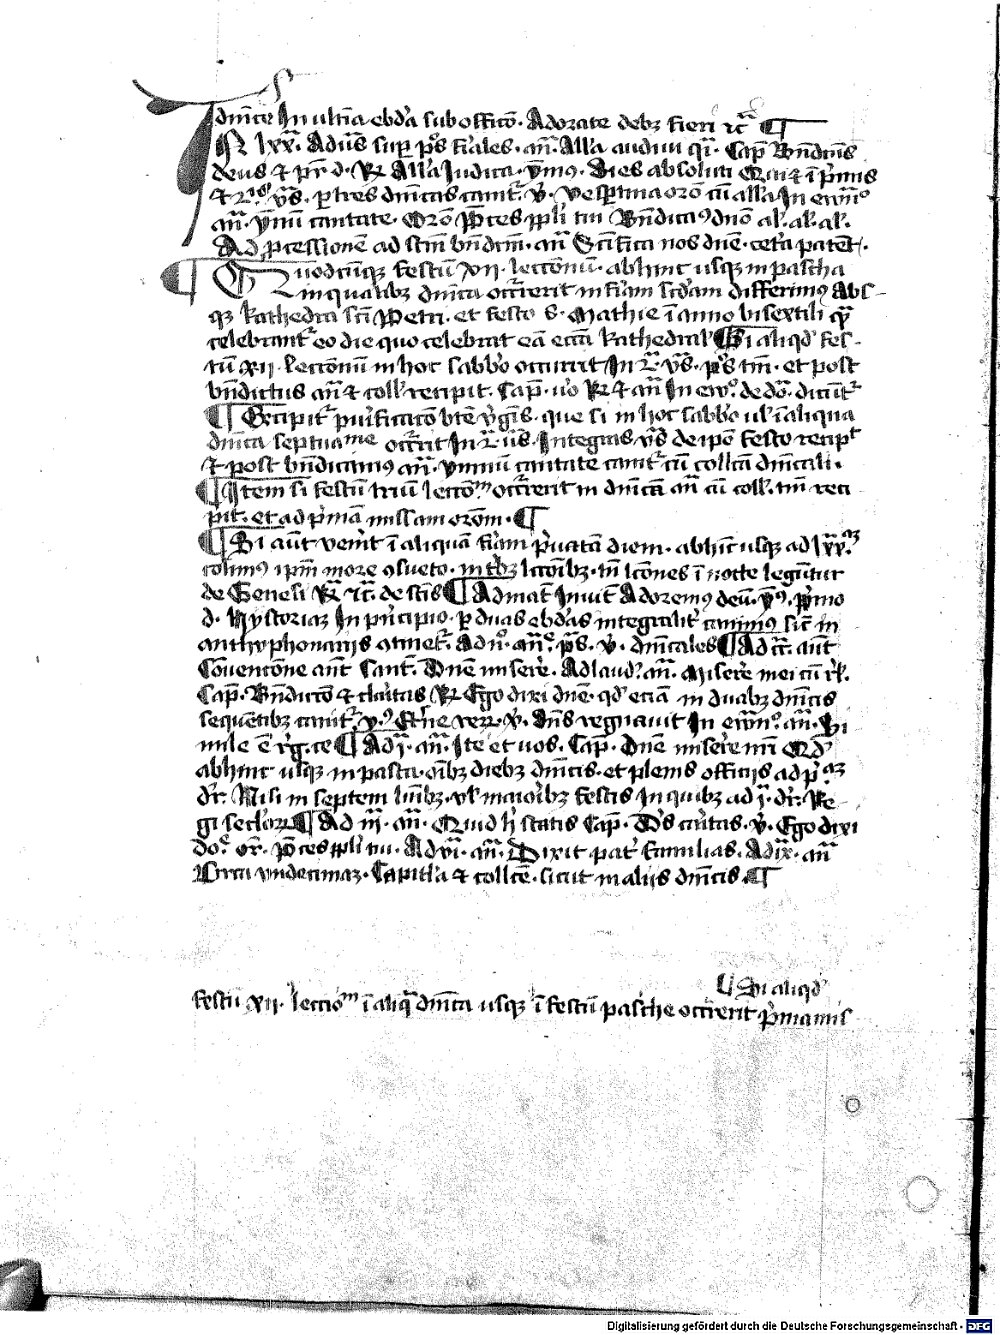 dnīce In ultīa ebda sub offico. Adorate debꝫ fieri ꝛc̄
lxx. Ad us sup ps fiales. an. Alla audiui qi. Cap Bndictus
deus et pr d. R Alla Iudica. ymus. Dies absoluti
et vs. p tres dnicas cantr v. Vespertina oro cu alla In ewno
an. ymnu cantate. Oro Pces ppli tui Bndicamus dno al. al. al.
Ad pcessione ad scm bndcm. an Scifica nos dne. cetera patet.
Quodcunq festu xii. lecconu. abhinc usq in pascha
in qualibꝫ dnica occrerit in fiam scdam differimus Abs-
qꝫ kathedra sci Petri. et festo s. Mathie i anno bisextili q
celebrantr eo die quo celebrat ea eccia kathedral Si aliqd fes-
tu xii. lecconu in hoc sabbo occurrit In vs. ps tm. et post
bndictus an et coll recipit. Cap. uo R et an In ew. de do. dicunt
Excipitr purificaco bte vgis. que si in hoc sabbo ul i aliqua
dnica septuame occrrit In us. Integras vs de ipo festo recipt
et post bndicamus an. ymnu cantate cantr cu collca dnicali.
Item si festu triu leccom occrerit in dnica an cu coll. tm reci
pit. et ad pma missam orom.
Si aut venit i aliqua fiam puata diem. abhinc usq ad lxx
colimus ipm more osueto. in tbꝫ lccoibꝫ. tn lcones i nocte leguntur
de Genesi R ꝛc. de scis Ad mat Inuit Adoremus deu. ys. pmo
d. hystoria In principio. p duas ebdas integralit canimus sic in
anthyphonarijs otinet. Ad no. an. ps. v. dnicales Ad cc. ant
Conuencone ant sanct. Dne misere. Ad laud. an. Miserere mei cu rl.
Cap. Bndicto et claritas R Ego dixi dne. qd eciam in duabꝫ dnicis
sequentibꝫ cantr y. Etne reru. v. Dns regnauit In ewno. an. Si
mile e rg. ce Ad i. an. Ite et uos. Cap. Dne miserere nri Qd
abhinc usq in pasca. oibꝫ diebꝫ dnicis. et plenis officijs ad pam
dr. Nisi in septem lnibꝫ. ul maioribꝫ festis In quibꝫ ad i. dr. Re-
gi seclor Ad iii. an. Quid h statis Cap. Ds caritas. v. Ego dixi
do. or. Pces ppli tui. Ad vi. an. Dixit pat familias. Ad ix. an
Circa vndecimaz. Capitla et collce. sicut in alijs dnicis.
Si aliqd
festu xii. leccom i aliq dnica usq i festu pasche occrerit pma mis
Digitalisierung gefördert durch die Deutsche Forschungsgemeinschaft - DFG